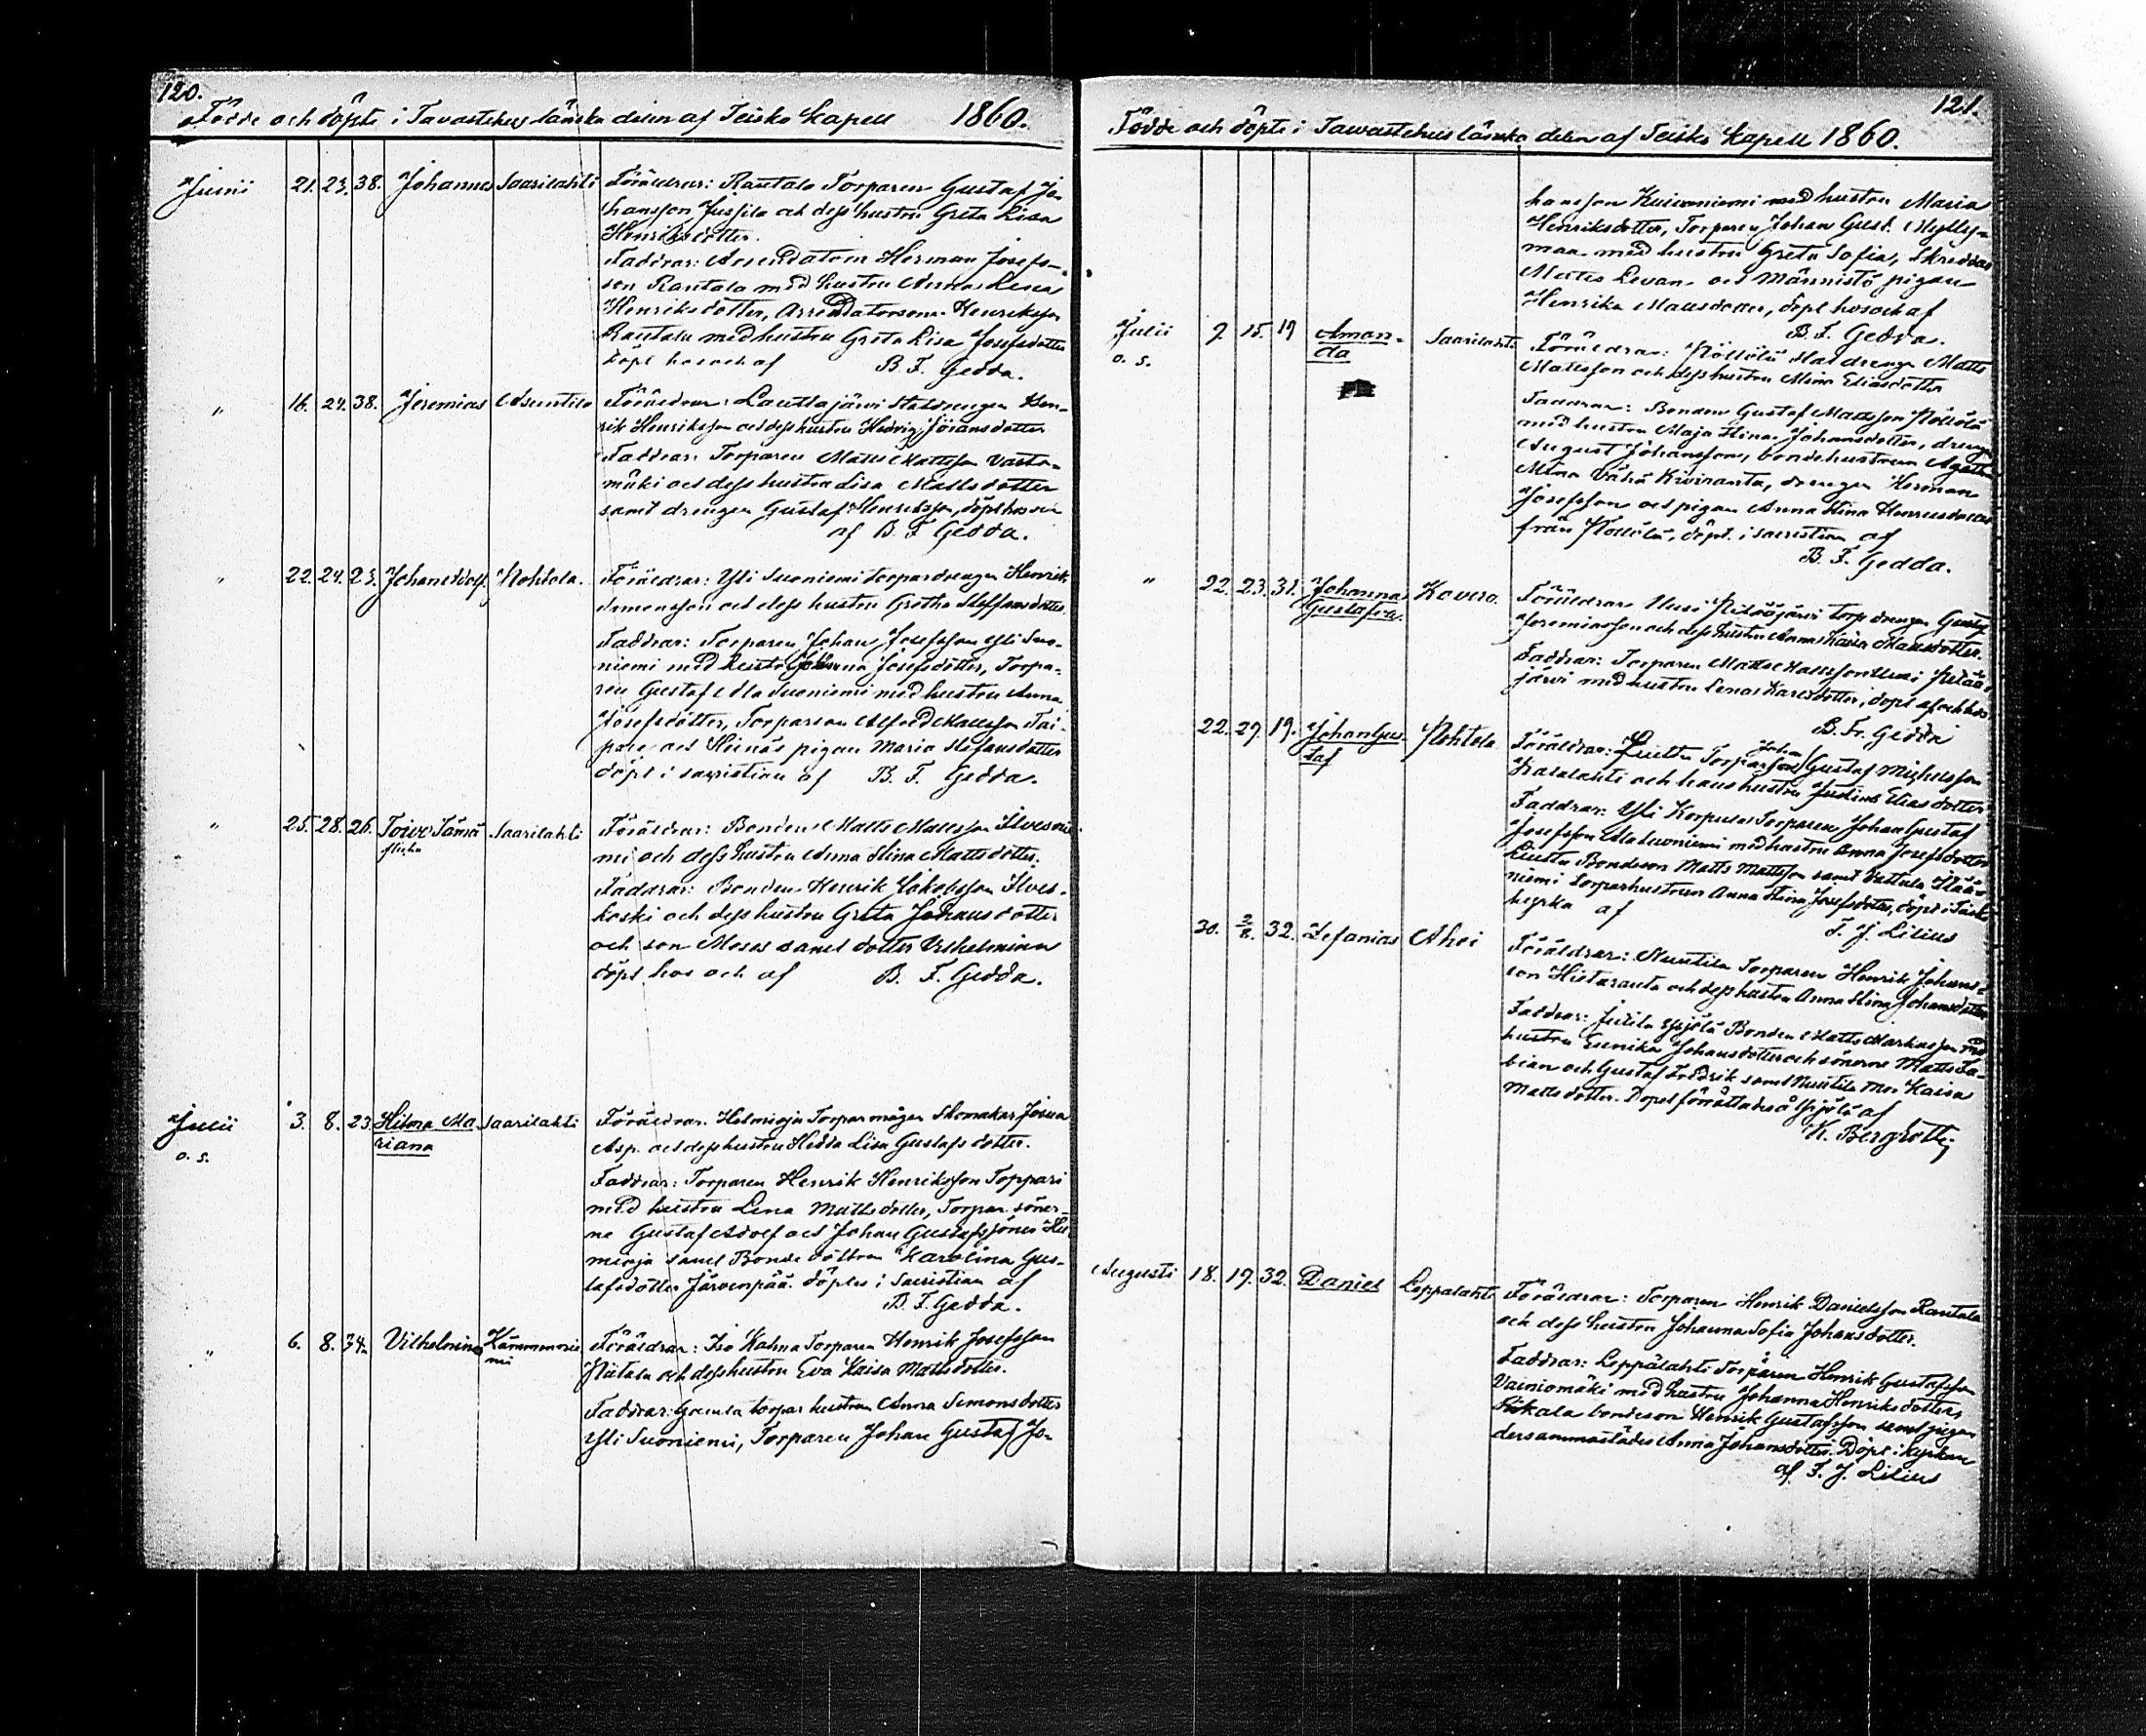 120.
Födde och döpte i Tavastehus länska delen af Teisko Kapell 1860.
Junii 21. 23. 38. Johannes Saarilahti Föräldrar: Rautala Torparen Gustaf Jo-
hansson Jussila och dess hustru Greta Lisa
Henriksdotter.
Faddrar: Arrendatorn Herman Josefs-
son Rantala med hustru Anna Lena
Henriksdotter, Arrendatorsonen Henriksson
Rautala med hustru Greta Lisa Josefsdotter
döpt hos och af B. F. Gedda.
" 16. 24. 38. Jeremias Asuntila Föräldrar: Lauttajärvi Statdrengen Hen-
rik Henriksson och dess hustru Hedvig Göransdotter
Faddrar: Torparen Matts Mattsson Vasta-
mäki och dess hustru Lisa Mattsdotter
samt drengen Gustaf Henriksson, döpt hos och
af B. F. Gedda.
" 22. 24. 23. Johan Adolf. Kohtola. Föräldrar: Yli Suoniemi torpardrengen Henrik
Simonsson och dess hustru Gretha Steffansdotter.
Faddrar: Torparen Johan Josefsson Yli Suo-
niemi med hustru Johanna Josefsdotter, Torpa-
ren Gustaf Ala Suoniemi med hustru Anna
Josefsdotter, Torparson Alfred Mattsson Tai-
pale och pigan Maria Stefansdotter
döpt i sacristian af B. F. Gedda.
" 25. 28. 26. Toivo Sämä Saarilahti Föräldrar: Bonden Matts Mattsson Ilvesnie-
flicka mi och dess hustru Anna Stina Mattsdotter.
Faddrar: Bonden Henrik Jakobsson Ilves-
koski och dess hustru Greta Johansdotter
och son Moses samt dotter Vilhelmina
döpt hos och af B. F. Gedda.
Julii 3. 8. 23. Hilma Ma- Saarilahti Föräldrar: Helmioja Torpar mågen Skomakar Josua
o. s. riana Asp. och dess hustru Hedda Lisa Gustafsdotter.
Faddrar: Torparen Henrik Henriksson Toppari
med hustru Lena Mattsdotter, Torpar söner-
ne Gustaf Adolf och Johan Gustafssöner Hel-
mioja samt Bonde dottren Karolina Gus-
tafsdotter Järvenpää. döptes i Sacristian af
B. F. Gedda.
" 6. 8. 34. Vilhelmina Kämmenie- Föräldrar: Iso Kahna Torparen Henrik Josefsson
mi och dess hustru Eva Kaisa Mattsdotter.
Faddrar: Gamla torpar hustrun Anna Simonsdotter
Yli Suoniemi, Torparen Johan Gustaf Jo-
121.
Födde och döpte i Tawastehus länska delen af Teisko Kapell 1860.
hansson Kuivaniemi med hustru Maria
Henriksdotter, Torparen Johan Gust. Mylly-
maa med hustru Greta Sofia, Skreddar
Matts Levan och Männistö pigan
Henrika Mattsdotter, döpt hos och af
B. F. Gedda.
Julii 7. 15. 19 Aman- Saarilahti Föräldrar: Pöllölä Statdrengen Matts
o. s. da Mattsson och dess hustru Mina Eliasdotter
Faddrar: Bonden Gustaf Mattsson Pöllölä
med hustru Maja Stina Johansdotter, drengen
August Johansson, bondehustrun Agatha
Mina Vähä Kiviranta, drengen Herman
Josefsson och pigan Anna Stina Henriksdotter
från Pöllölä, döpt i sacristian af
B. F. Gedda.
" 22. 23. 31. Johanna Kovero. Föräldrar Uusi Pitääjärvi torp drengen Gustaf
Gustafva. Jeremiasson och dess hustru Anna Kaisa Mattsdotter.
Faddrar: Torparen Matts Mattsson Uusi Pitää-
järvi med hustru Lena Karlsdotter, döpt af och hos
B. Fr. Gedda
22. 29. 19. Johan Gus- Kohtola Föräldrar: Liuttu Torparson Johan Gustaf Michelsson
taf Kalalahti och hans hustru Justina Eliasdotter
Faddrar: Yli Korpula Torparen Johan Gustaf
Josefsson Alasuoniemi med hustru Anna Josefsdotter
Liuttu Bondeson Matts Mattsson samt Vattula Sää-
niemi torparhustrun Anna Stina Josefsdotter, döpt i Teisko
kyrka af F. J. Lilius
30. 2/8. 32. Zefanias Ahoi Föräldrar: Nuutila Torparen Henrik Johans-
son Hietaranta och dess hustru Anna Stina Johansdotter
Faddrar: Bonden Matts Markusson med
hustru Eunika Johansdotter och sönerne Matts Fa-
bian och Gustaf Fredrik samt Nuutila mor Kaisa
Mattsdotter. Dopet förrättades å af
K. Bergroth.
Augusti 18. 19. 32. Daniel Leppälahti Föräldrar: Torparen Henrik Danielsson Rantala
och dess hustru Johanna Sofia Johansdotter.
Faddrar: Leppälahti Torparen Henrik Gustafsson
Vainiomäki med hustru Johanna Henriksdotter,
bondeson Henrik Gustafsson samt pigan
dersammastädes Anna Johansdotter. Döpt i kyrkan
af F. J. Lilius